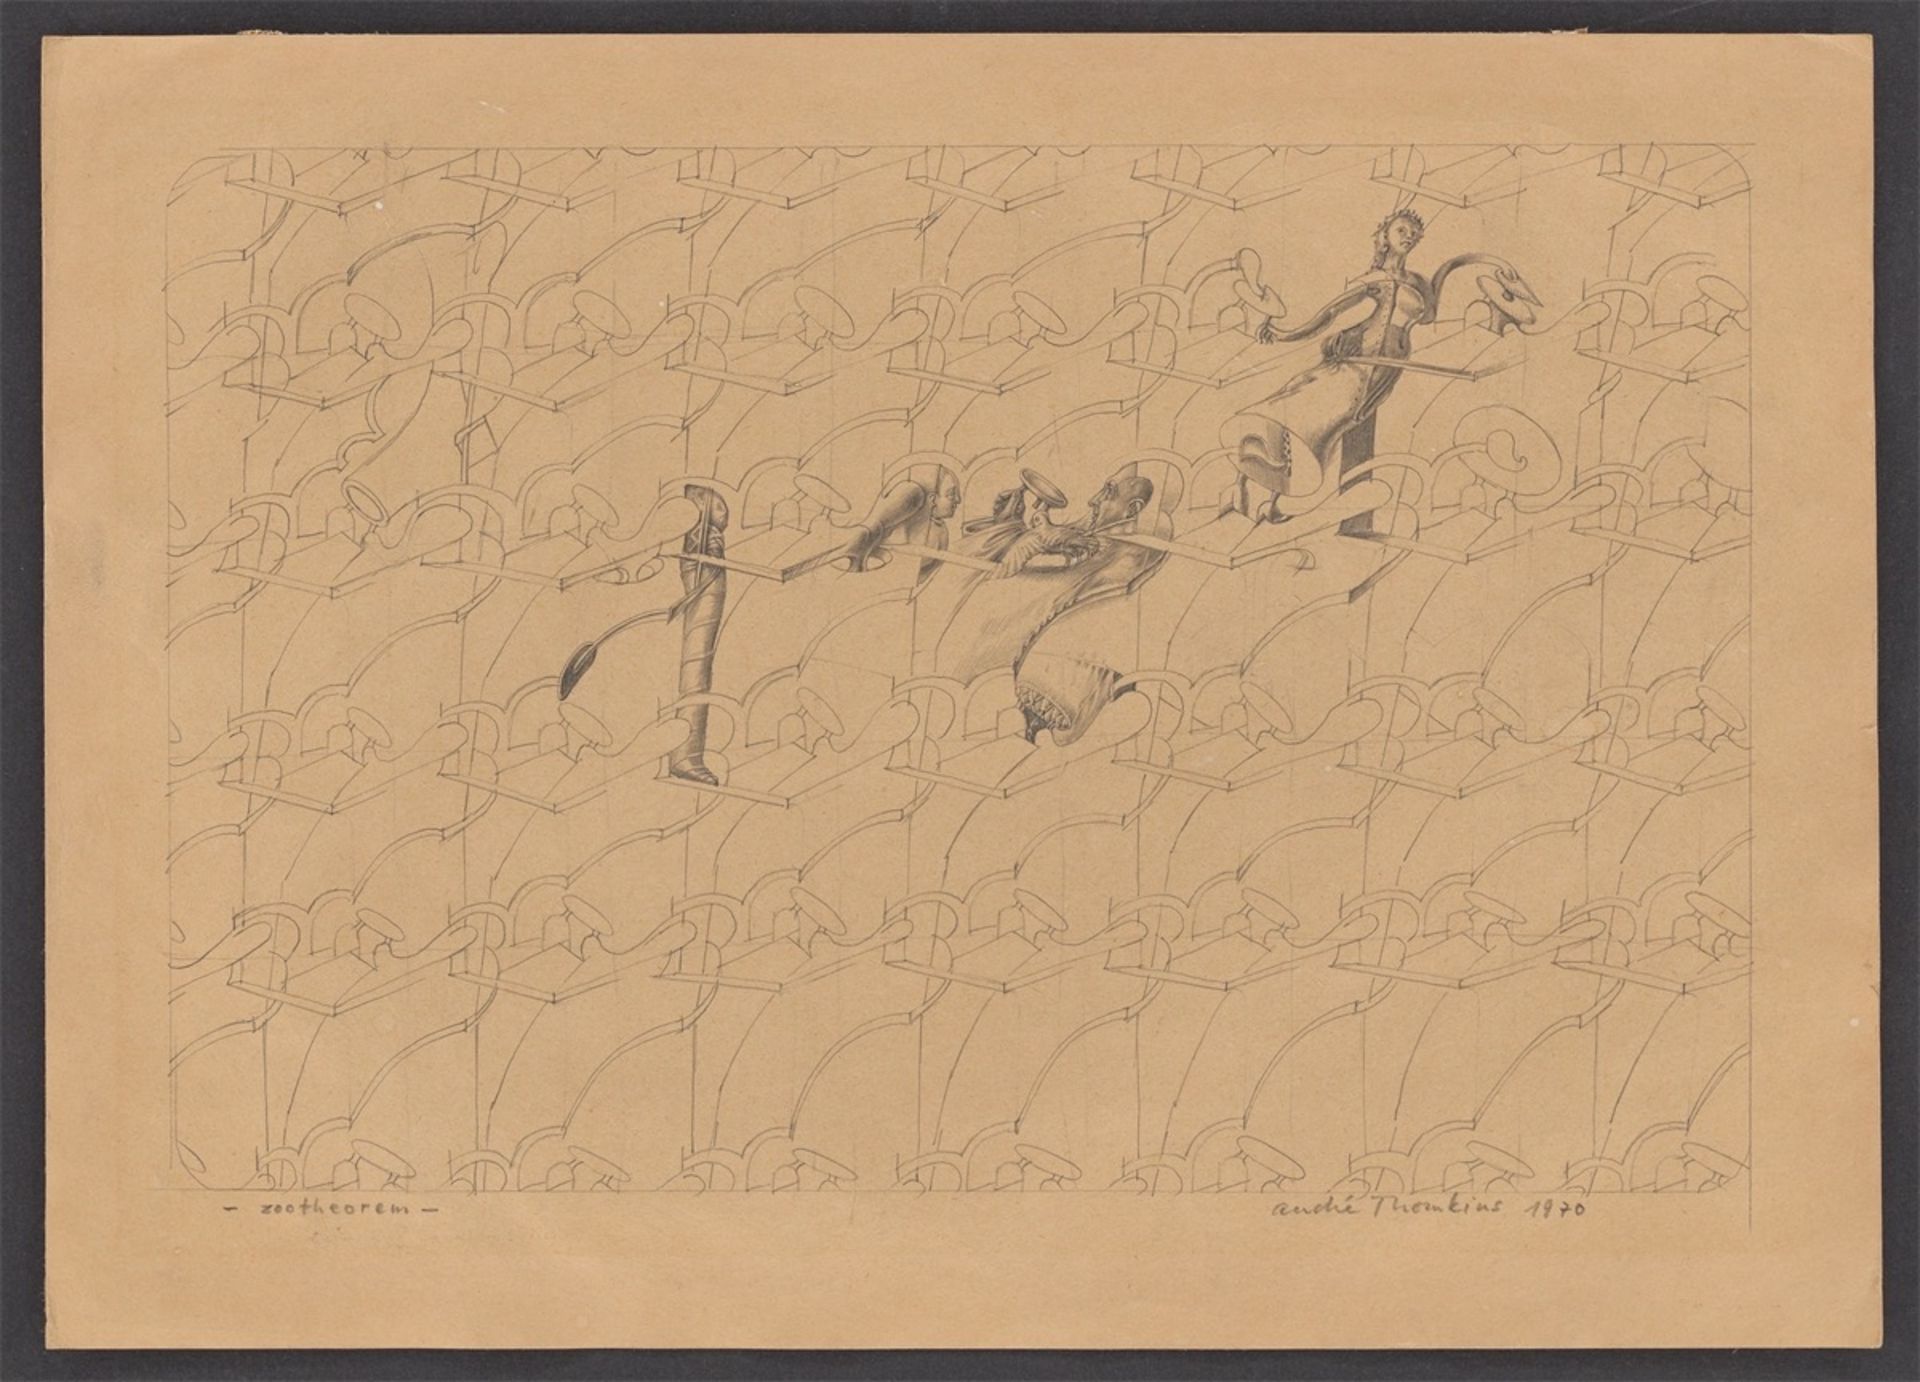 - zootheorem -
andré Thomkins 1970